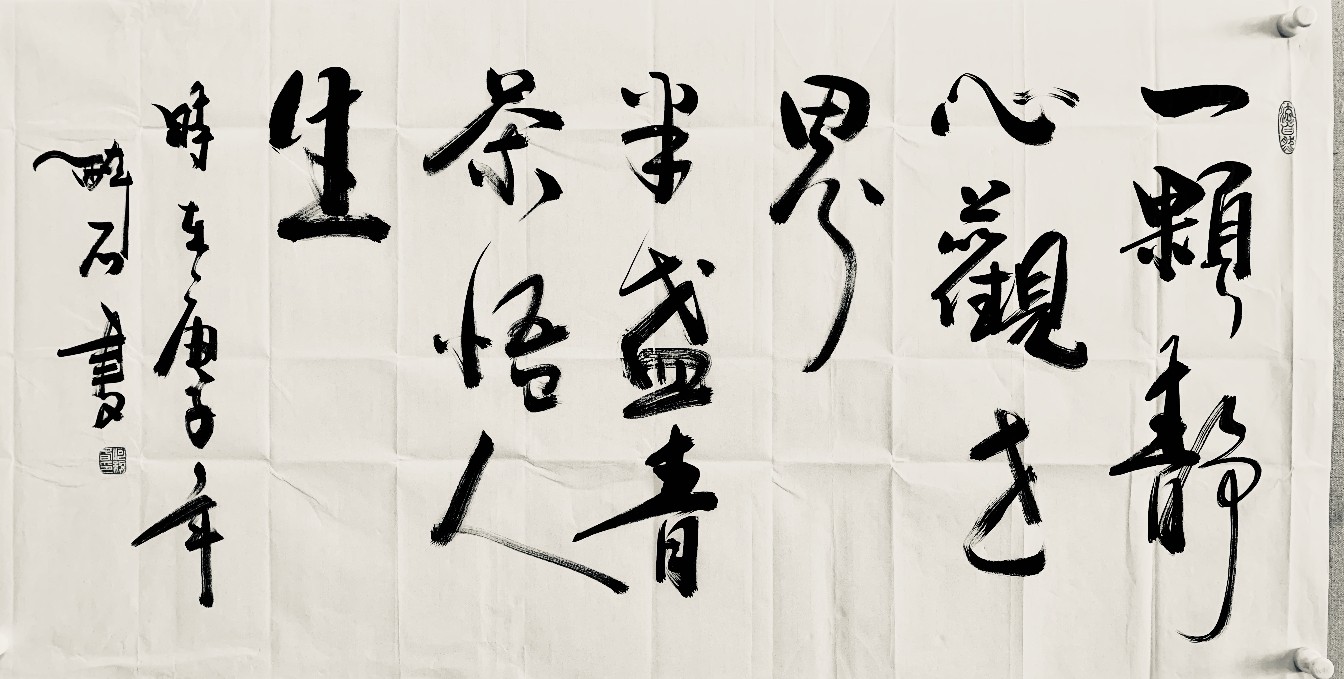 一顆靜
心觀世
界
半盛青
茶悟人
生
時在庚子年
石書